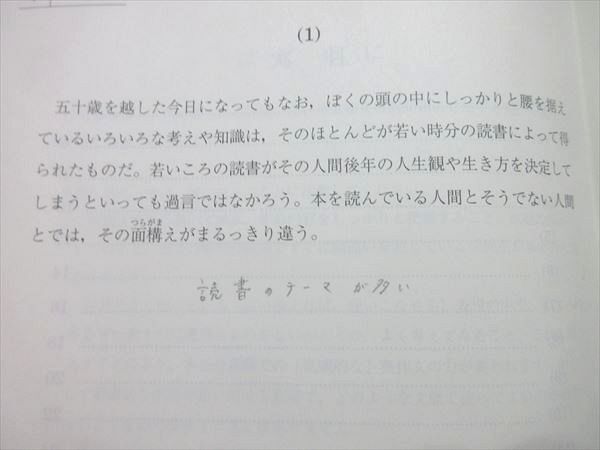 (1)
五十歳を越した今日になってもなお，ぼくの頭の中にしっかりと腰を据え
ているいろいろな考えや知識は，そのほとんどが若い時分の読書によって得
られたものだ。若いころの読書がその人間後年の人生観や生き方を決定して
しまうといっても過言ではなかろう。本を読んでいる人間とそうでない人間
つらがま
とでは，その面構えがまるっきり違う。
読書のテーマが多い
14
16
18
20
22